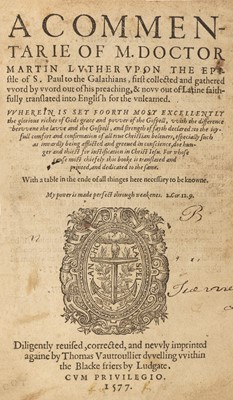 A COMMEN-
TARIE OF M. DOCTOR
MARTIN LVTHER VPON THE EPI-
stle of S. Paul to the Galathians, first collected and gathered
vvord by vvord out of his preaching, & novv out of Latine faith-
fully translated into English for the vnlearned.
VVHEREIN IS SET FOORTH MOST EXCELLENTLY
the glorious riches of Gods grace and povver of the Gospell, vvith the difference
betvvene the lavve and the Gospell, and strength of faith declared: to the ioy-
full comfort and confirmation of all true Christian beleuers, especially such
as invvardly being afflicted and greeued in conscience, doe hun-
ger and thirst for iustification in Christ Iesu. For vvhose
cause most chiefely this booke is translated and
printed, and dedicated to the same.
With a table in the ende of all thinges here necessary to be knowne.
My power is made perfect through weakenes. 2.Cor.12.9.
B
Diligently reuised, corrected, and nevvly imprinted
againe by Thomas Vautroullier dvvelling vvithin
the Blacke friers by Ludgate.
CVM PRIVILEGIO.
1577.